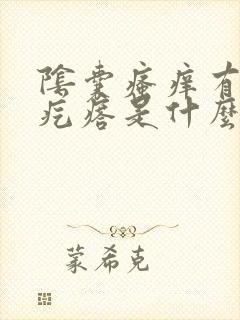 陰囊瘙癢有
疙瘩是什麼
蒙希克